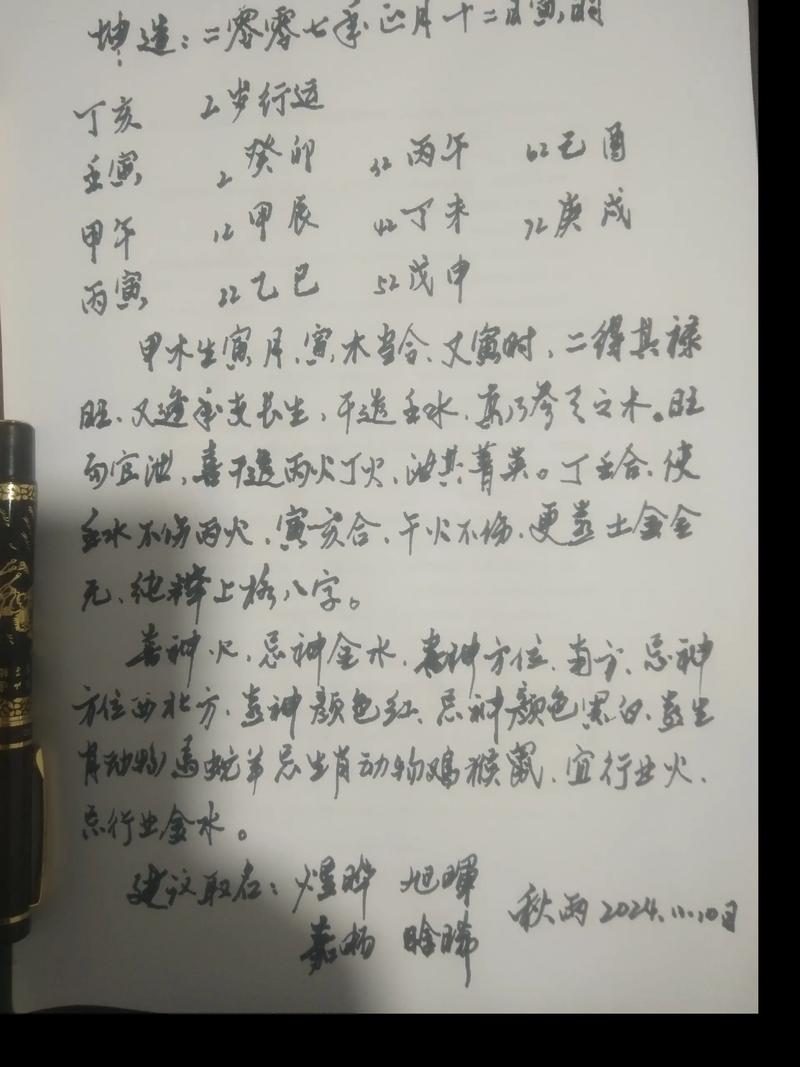 坤造：二零零七年正月十二日寅时
丁亥 2岁行运
壬寅 2癸卯 32丙午 62己酉
甲午 12甲辰 42丁未 72庚戌
丙寅 22乙巳 52戊申
甲木生寅月、寅木当令、又寅时、二得其禄
旺、又逢年支长生，干透壬水，真乃参天之木。旺
而宜泄，喜干透丙火丁火，泄其菁英。丁壬合、使
壬水不伤丙火、寅亥合、午火不伤、更喜土金全
无、纯粹上格八字。
喜神火、忌神金水、喜神方位、南方、忌神
方位西北方、喜神颜色红、忌神颜色黑白、喜生
肖动物马蛇羊忌生肖动物鸡猴鼠、宜行业火、
忌行业金水。
建议取名：煜晔 旭暉
嘉炳 晗晞
秋雨2024.11.10日